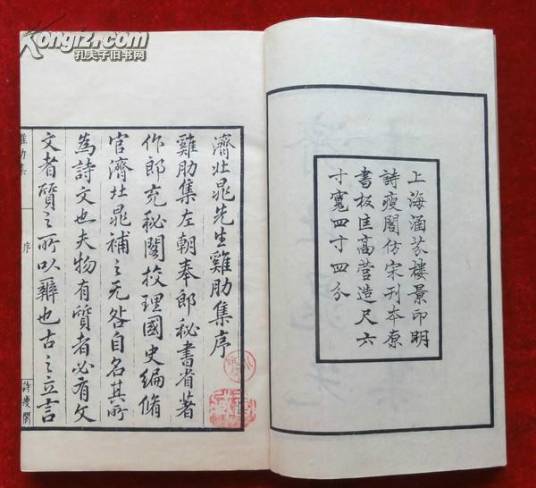 Kongfz.com
孔夫子旧书网
上海涵芬樓景印明
詩瘦閣仿宋刊本原
書板匡高营造尺六
寸寬四寸四分
濟北晁先生雞肋集序
雞肋集左朝奉郎秘書省著
作郎充秘閣挍理國史編脩
官濟北晁補之无咎自名其所
為詩文也夫物有質者必有文
文者質之所以辨也古之立言
雞肋集
序
詩瘦閣